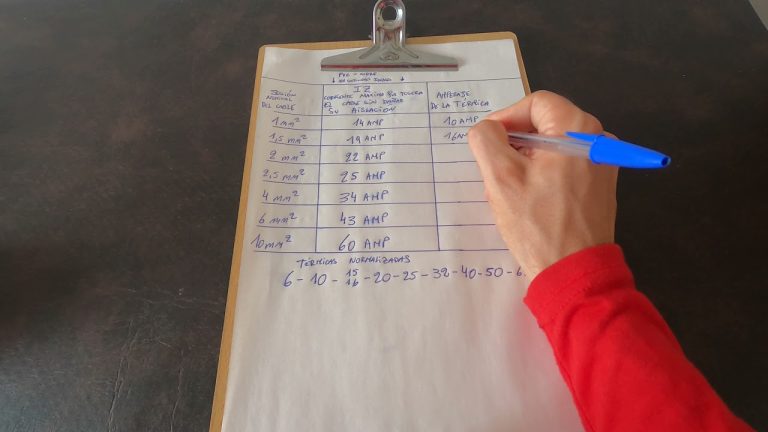 SECCIÓN
NOMINAL
DEL CABLE
IZ
CORRIENTE MAXIMA Q/ TOLERA
EL CABLE SIN DAÑAR
SU AISLACION
AMPERAJE
DE LA TÉRMICA
1 mm² 14 AMP 10 AMP
1,5 mm² 19 AMP 16 AM
2 mm² 22 AMP
2,5 mm² 25 AMP
4 mm² 34 AMP
6 mm² 43 AMP
10 mm² 60 AMP
TÉRMICAS NORMALIZADAS
6 - 10 - 15 16 - 20 - 25 - 32 - 40 - 50 - 6